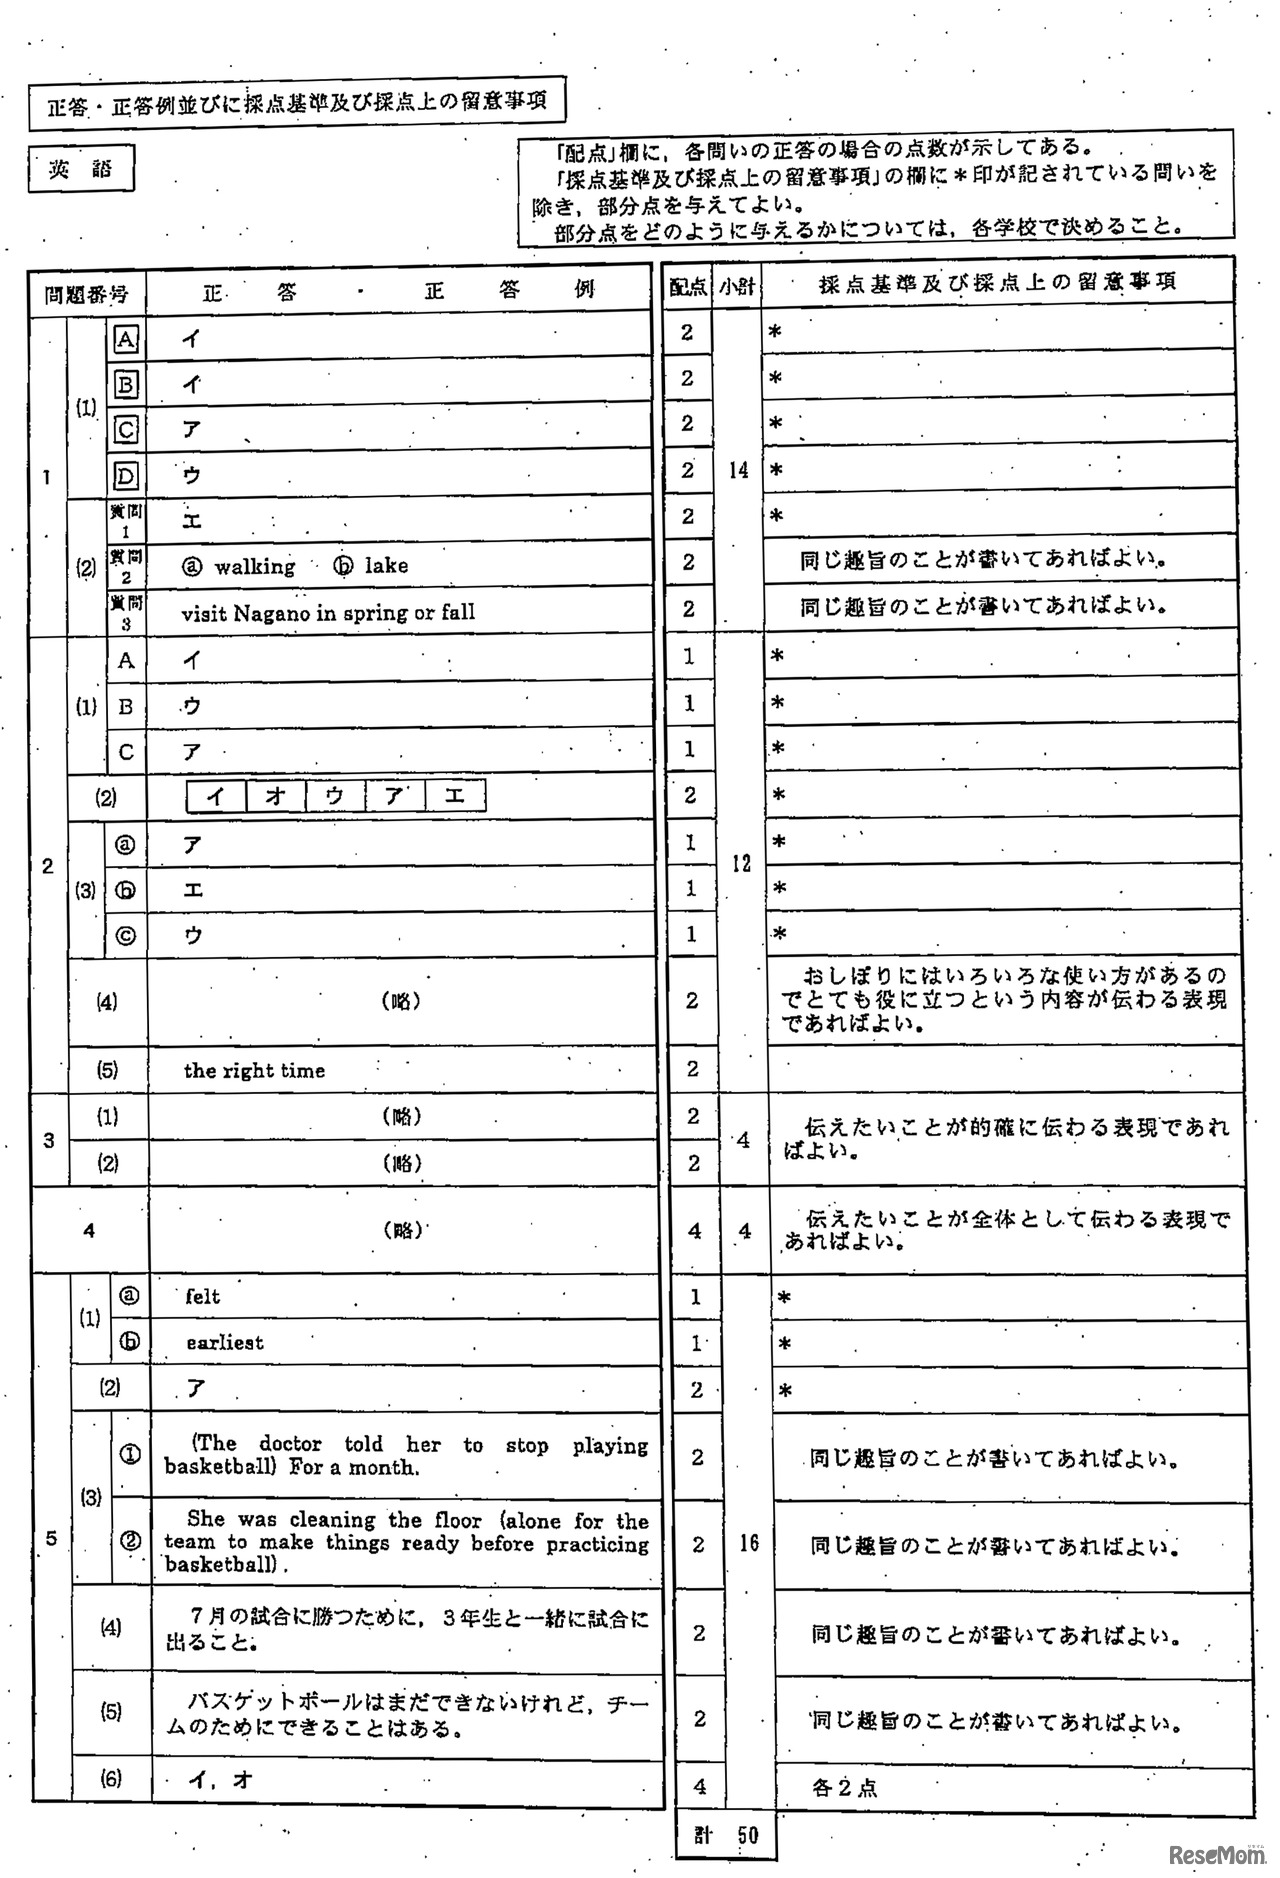 正答・正答例並びに採点基準及び採点上の留意事項
英 語
「配点」欄に，各問いの正答の場合の点数が示してある。
「採点基準及び採点上の留意事項」の欄に＊印が記されている問いを
除き，部分点を与えてよい。
部分点をどのように与えるかについては，各学校で決めること。
問題番号 正 答 ・ 正 答 例 配点 小計 採点基準及び採点上の留意事項
1 (1) A イ 2 14 ＊
B イ 2 ＊
C ア 2 ＊
D ウ 2 ＊
(2) 質問1 エ 2 ＊
質問2 ⓐ walking ⓑ lake 2 同じ趣旨のことが書いてあればよい。
質問3 visit Nagano in spring or fall 2 同じ趣旨のことが書いてあればよい。
2 (1) A イ 1 12 ＊
B ウ 1 ＊
C ア 1 ＊
(2) イ オ ウ ア エ 2 ＊
(3) ⓐ ア 1 ＊
ⓑ エ 1 ＊
ⓒ ウ 1 ＊
(4) （略） 2 おしぼりにはいろいろな使い方があるの
でとても役に立つという内容が伝わる表現
であればよい。
(5) the right time 2
3 (1) （略） 2 4 伝えたいことが的確に伝わる表現であれ
ばよい。
(2) （略） 2
4 （略） 4 4 伝えたいことが全体として伝わる表現で
あればよい。
5 (1) ⓐ felt 1 16 ＊
ⓑ earliest 1 ＊
(2) ア 2 ＊
(3) ① (The doctor told her to stop playing
basketball) For a month. 2 同じ趣旨のことが書いてあればよい。
② She was cleaning the floor (alone for the
team to make things ready before practicing
basketball). 2 同じ趣旨のことが書いてあればよい。
(4) 7月の試合に勝つために，3年生と一緒に試合に
出ること。 2 同じ趣旨のことが書いてあればよい。
(5) バスケットボールはまだできないけれど，チー
ムのためにできることはある。 2 同じ趣旨のことが書いてあればよい。
(6) イ，オ 4 各2点
計 50
ReseMom